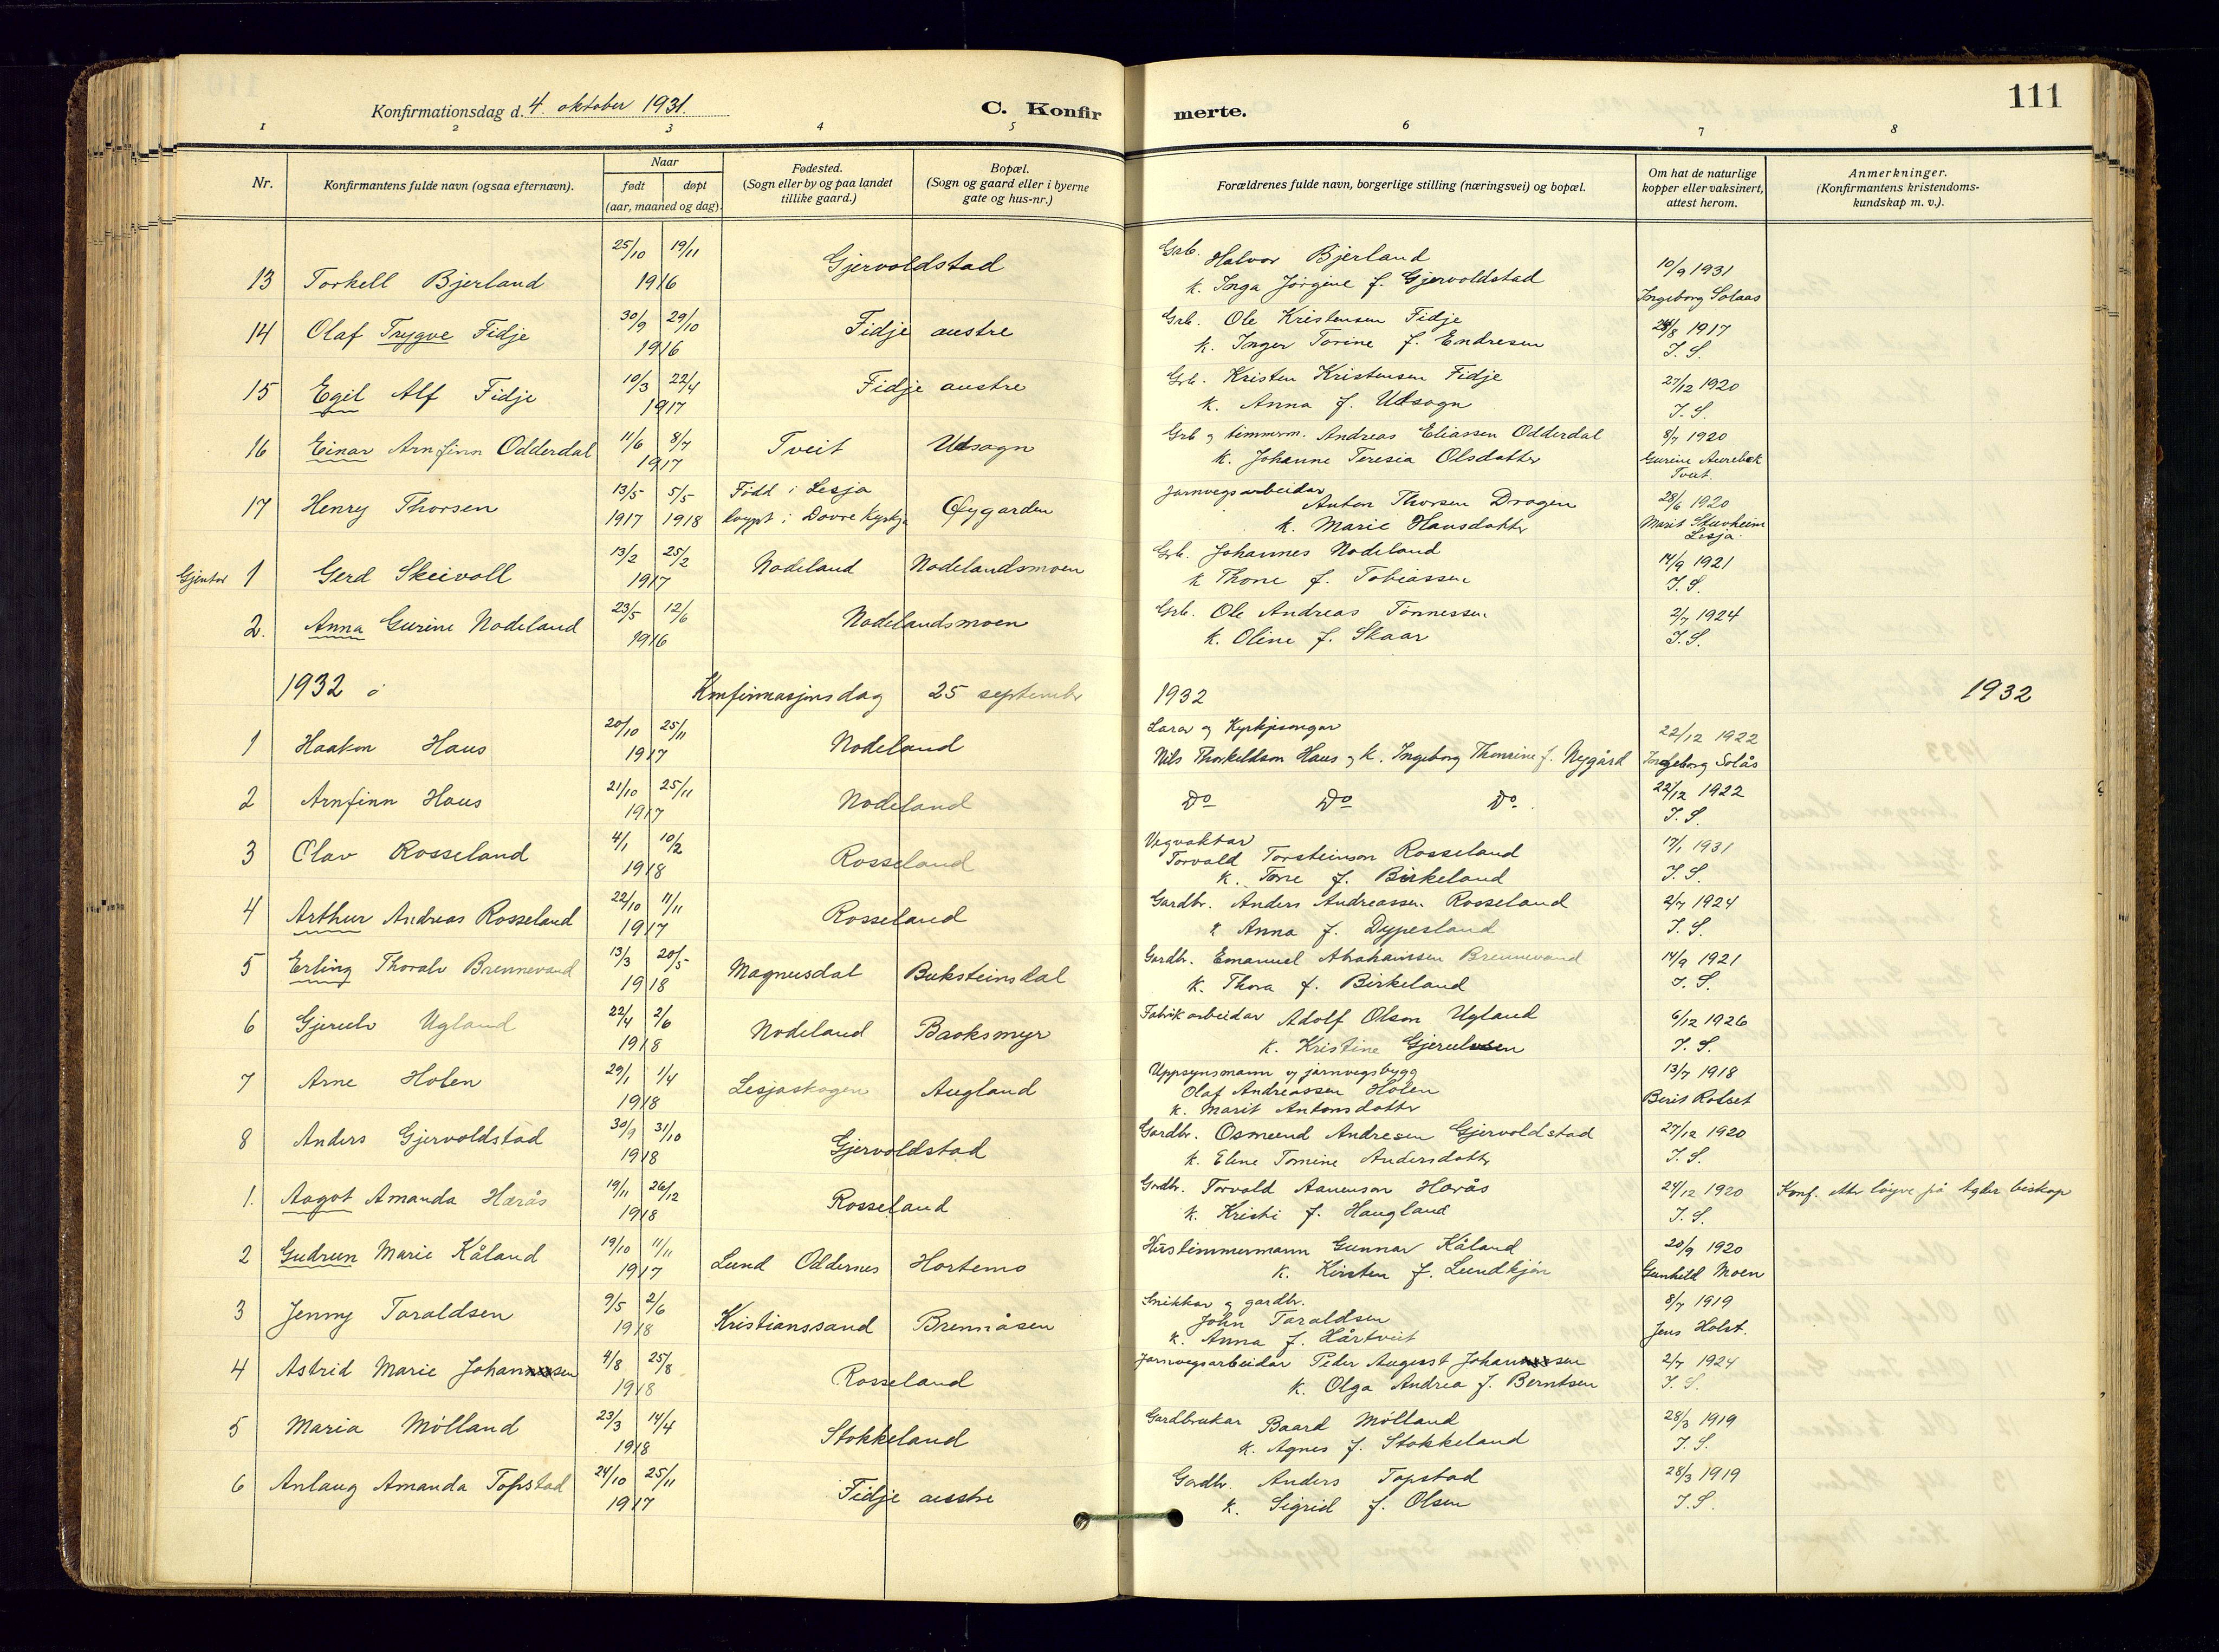 Konfirmationsdag d. 4. oktober 1931.
C. Konfirmerte.
111
1 2 3 4 5 6 7 8
Nr.
Konfirmantens fulde navn (ogsaa efternavn).
Naar
født døpt
(aar, maaned og dag).
Fødested.
(Sogn eller by og paa landet
tillike gaard.)
Bopæl.
(Sogn og gaard eller i byerne
gate og hus-nr.)
Forældrenes fulde navn, borgerlige stilling (næringsvei) og bopæl.
Om hat de naturlige
kopper eller vaksinert,
attest herom.
Anmerkninger.
(Konfirmantens kristendoms-
kundskap m. v.).
13 Torkell Bjerland 25/10 19/11 1916 Gjervoldstad
Grb. Halvor Bjerland
k. Inga Jørgine f. Gjervoldstad
10/9 1931
Ingeborg Solaas
14 Olaf Trygve Fidje 30/9 29/10 1916 Fidje austre
Grb. Ole Kristensen Fidje
k. Inger Torine f. Endresen
28/8 1917
I. S.
15 Egil Alf Fidje 10/3 22/4 1917 Fidje austre
Grb. Kristen Kristensen Fidje
k. Anna f. Udsogn
27/12 1920
I. S.
16 Einar Arnfinn Odderdal 11/6 8/7 1917 Tveit Udsogn
Grb og timmerm. Andreas Eliassen Odderdal
k. Johanne Teresia Olsdotter
8/7 1920
Gurine Aurebek
Tveit.
17 Henry Thorsen 13/5 1917 5/5 1918 Född i Lesja
døypt i Dovre Kyrkja
Øygarden
Jarnvegsarbeidar
Anton Thorsen Drogen
k. Marie Hansdotter
28/6 1920
Marit Stuvheim
Lesja.
Gjentor 1 Gerd Skeivoll 13/2 25/2 1917 Nodeland Nodelandsmoen
Grb. Johannes Nodeland
k Thone f. Tobiassen
14/9 1921
I. S.
2. Anna Gurine Nodeland 23/5 12/6 1916 Nodelandsmoen
Grb. Ole Andreas Tønnessen
k. Oline f. Skaar
2/7 1924
I. S.
1932 Konfirmasjonsdag 25 september 1932 1932
1 Haakon Haus 20/10 25/11 1917 Nodeland
Lærar og Kyrkjesongar
Nils Thorkeldson Haus og k. Ingeborg Thomine f. Nygård
22/12 1922
Ingeborg Solås
2 Arnfinn Haus 21/10 25/11 1917 Nodeland
Do Do Do.
22/12 1922
I. S.
3 Olav Rosseland 4/1 10/2 1918 Rosseland
Vegvaktar
Torvald Torsteinson Rosseland
k. Tone f. Birkeland
17/1 1931
I. S.
4 Arthur Andreas Rosseland 22/10 11/11 1917 Rosseland
Gardbr. Anders Andreassen Rosseland
k Anna f. Dypesland
2/7 1924
I. S.
5 Erling Thoralv Brennevand 13/3 20/5 1918 Magnusdal Buksteinsdal
Gardbr. Emanuel Abrahamsen Brennevand
k. Thora f. Birkeland
14/9 1921
I. S.
6 Gjerulv Ugland 22/4 2/6 1918 Nodeland Baaksmyr
Fabrikarbeidar Adolf Olson Ugland
k. Kristine Gjerulvsen
6/12 1926
I. S.
7 Arne Holen 29/1 1/4 1918 Lesjaskogen Augland
Uppsynsmann ej jarnvegsbygg
Olaf Andreassen Holen
k. Marit Antonsdotter
13/7 1918
Berit Rolset
8 Anders Gjervoldstad 30/9 31/10 1918 Gjervoldstad
Gardbr. Osmund Andresen Gjervoldstad
k. Eline Tomine Andersdotter
27/12 1920
I. S.
1. Aagot Amanda Hærås 19/11 26/12 1918 Rosseland
Gardbr. Torvald Aanenson Hærås
k. Kristi f. Haugland
24/12 1920
I. S.
Konf. etter løyve på Agder biskop
2 Gudrun Marie Kåland 19/10 11/11 1917 Lund Oddernes Hortemo
Hustimmermann Gunnar Kåland
k. Kirsten f. Lundkjøn
20/9 1920
Gunhild Moen
3 Jenny Taraldsen 9/5 2/6 1918 Kristianssand Brennåsen
Snikkar og gardbr.
John Taraldsen
k. Anna f. Hårtveit
8/7 1919
Jens Holst.
4 Astrid Marie Johansen 4/8 25/8 1918 Rosseland
Jarnvegsarbeidar Peder August Johansen
k. Olga Andrea f. Berntsen
2/7 1924
I. S.
5 Maria Mølland 23/3 14/4 1918 Stokkeland
Gardbrukar Baard Mølland
k. Agnes f. Stokkeland
28/3 1919
I. S.
6 Anlaug Amanda Topstad 24/10 25/11 1917 Fidje austre
Gardbr. Anders Topstad
k. Sigrid f. Olsen
28/3 1919
I. S.